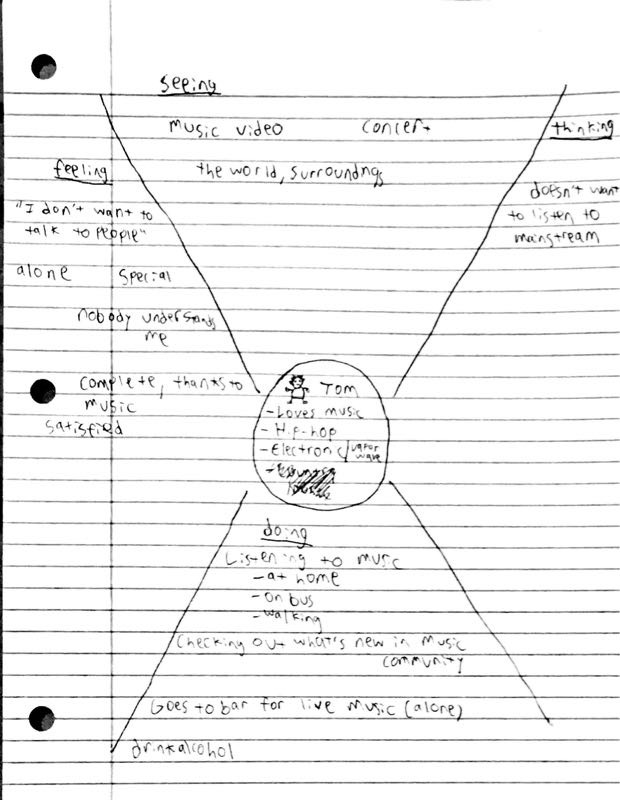 Seeing
Music video
Concert
the world, surroundngs
thinking
doesn't want
to listen to
mainstream
feeling
"I don't want to
talk to people"
alone
special
nobody understands
me
complete, thanks to
music
satisfied
Tom
-Loves music
-Hip-hop
-Electronic/vapor
wave
doing
Listening to music
-at home
-on bus
-walking
Checking out what's new in music
community
Goes to bar for live music (alone)
drink alcohol